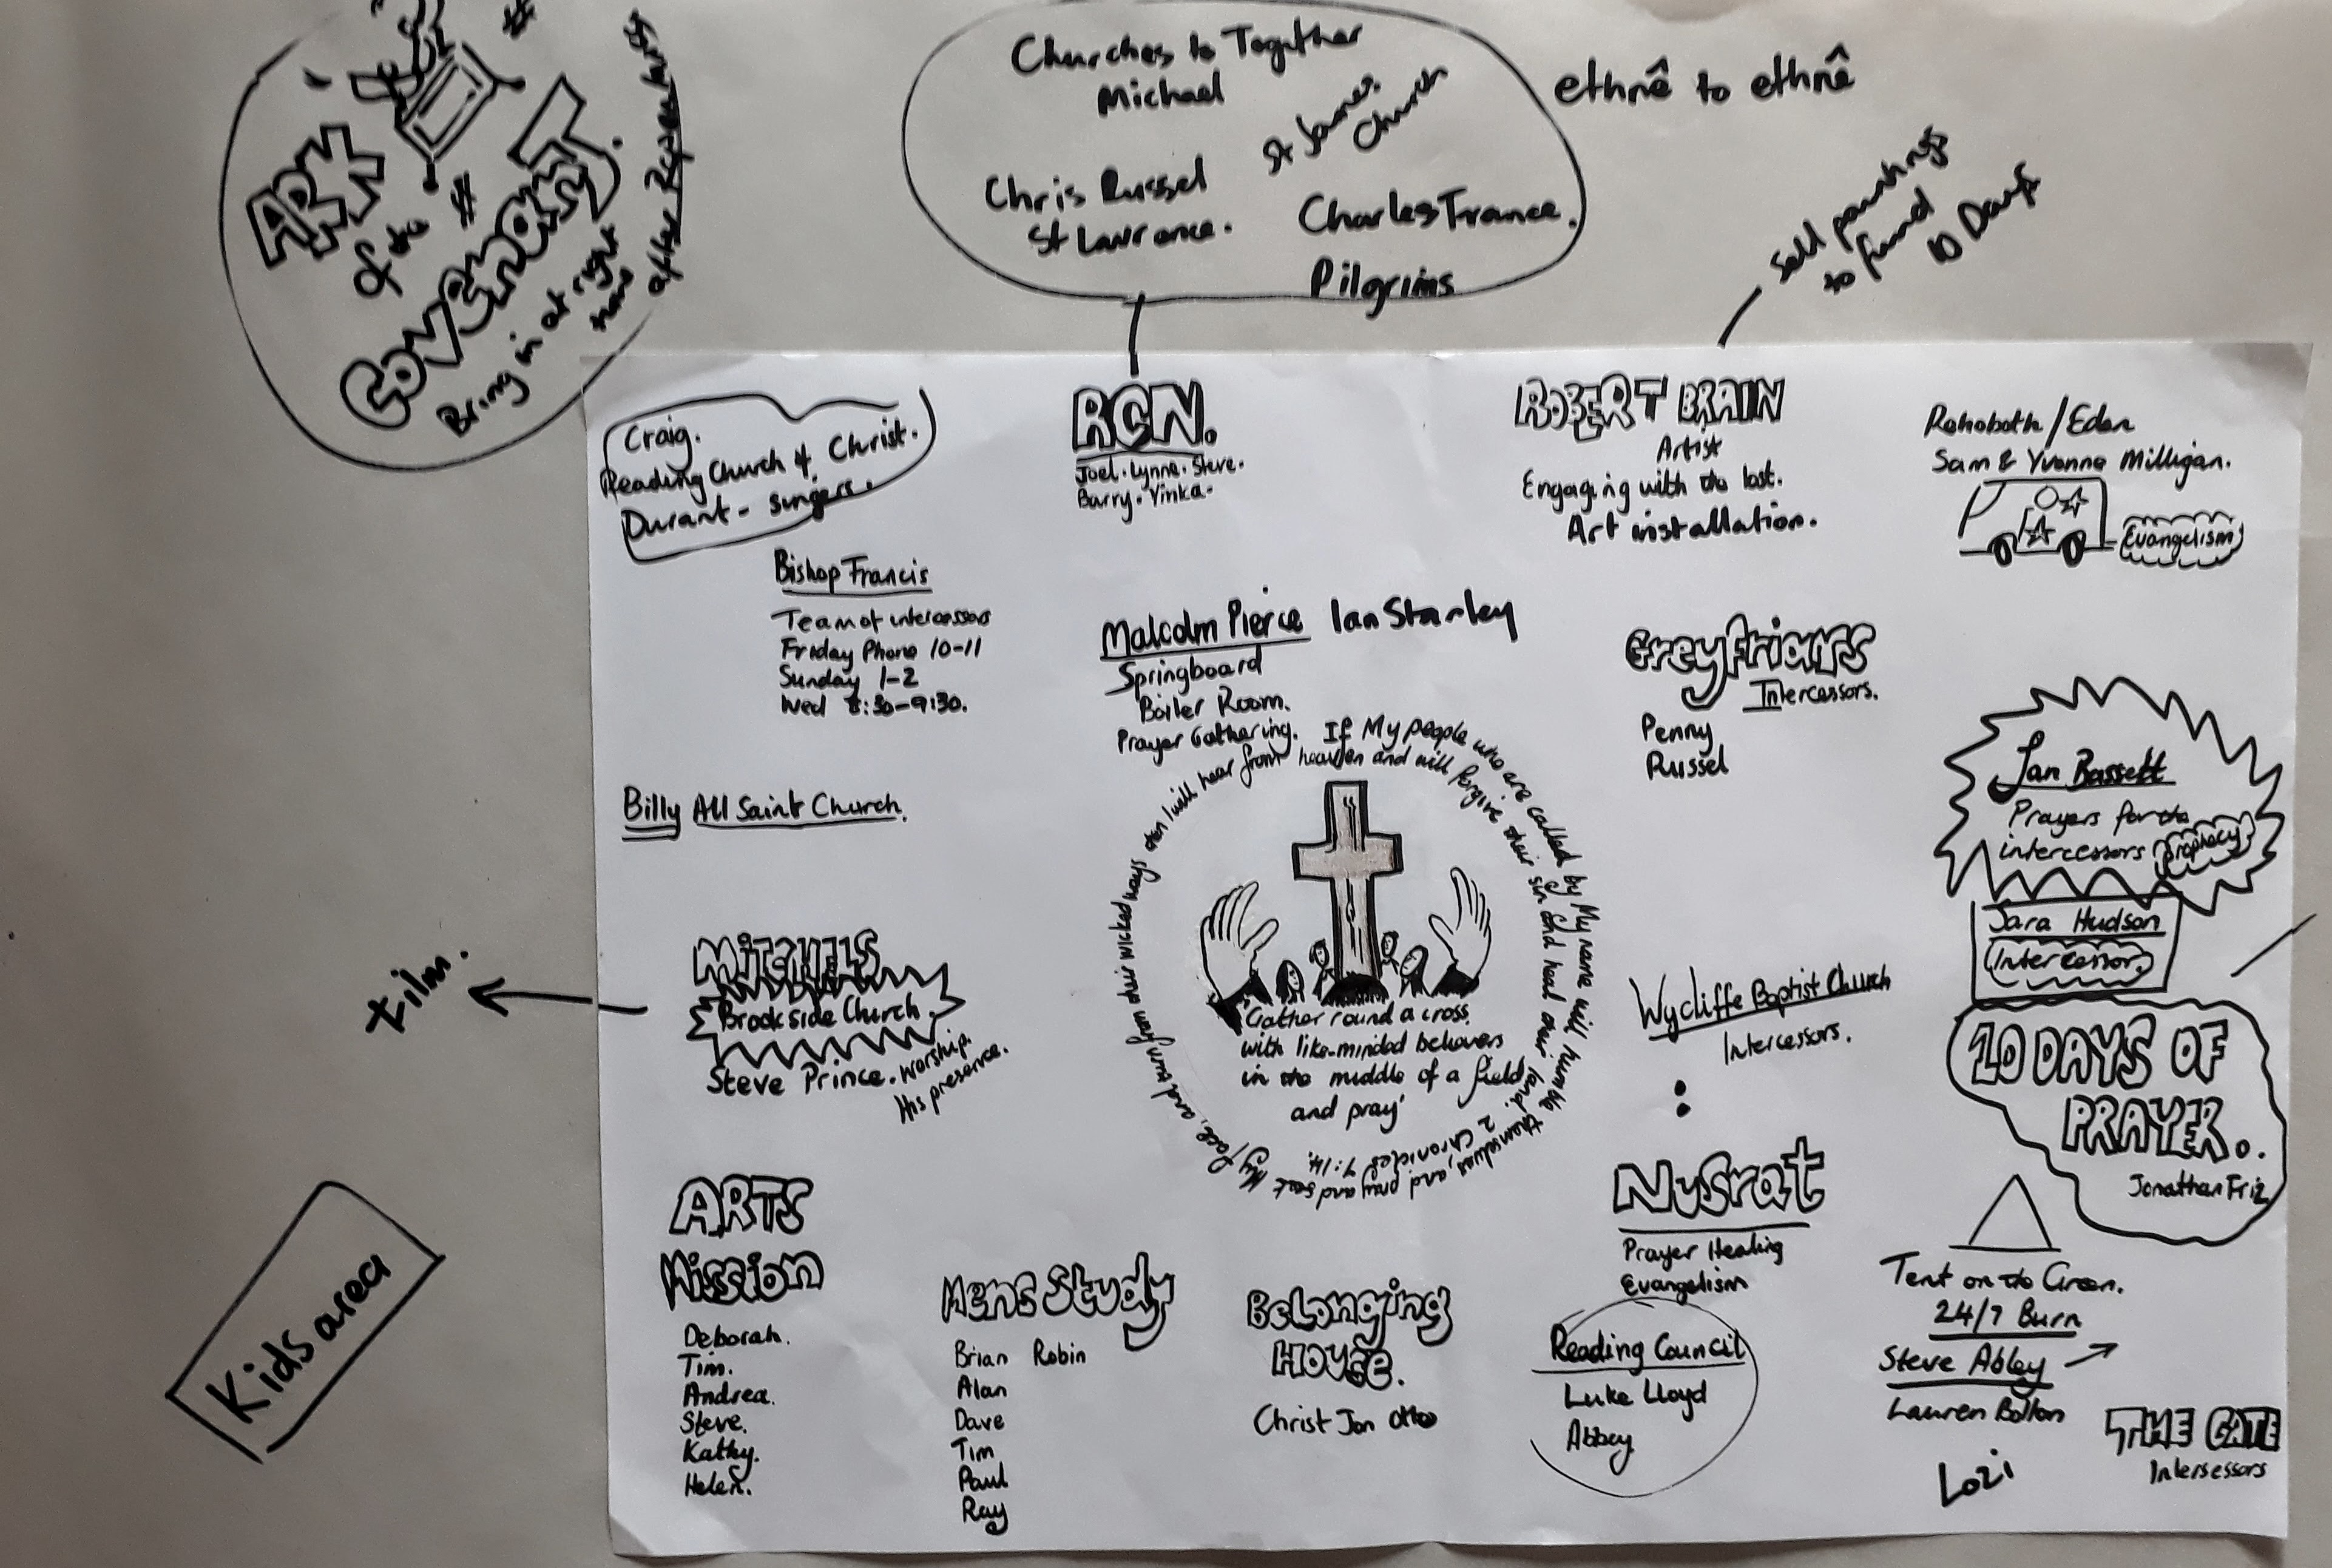 ARK
of the
COVENANT
Bring in at right
time
after Repentance
Churches to Together
Michael
St James
Church
Chris Russel
St Lawrance.
Charles France.
Pilgrims
ethnê to ethnê
Sell paintings
to fund
10 Days
Craig.
Reading Church of Christ.
Durant - singers.
RCN.
Joel. Lynne. Steve.
Barry. Yinka.
ROBERT BRAIN
Artist
Engaging with the lost.
Art installation.
Rehoboth / Eden
Sam & Yvonne Milligan.
Evangelism
Bishop Francis
Team of intercessors
Friday Phone 10-11
Sunday 1-2
Wed 8:30-9:30.
Malcolm Pierce Ian Stanley
Springboard
Boiler Room.
Prayer Gathering.
Greyfriars
Intercessors.
Penny
Russel
Jan Bassett
Prayers for the
intercessors Prophecy
Sara Hudson
Intercessor.
Billy All Saint Church.
If My people who are called by My name will humble themselves, and pray and seek My face, and turn from their wicked ways then I will hear from heaven and will forgive their sin and heal their land. 2 Chronicles 7:14.
'Gather round a cross,
with like-minded believers
in the middle of a field
and pray'
MITCHELS
Brookside Church.
Steve Prince. Worship.
His presence.
Film.
Wycliffe Baptist Church
Intercessors.
10 DAYS OF
PRAYER.
Jonathan Friz
Kids area
ARTS
Mission
Deborah.
Tim.
Andrea.
Steve.
Kathy.
Helen.
Mens Study
Brian Robin
Alan
Dave
Tim
Paul
Ray
Belonging
House.
Christ Jon Otto
Nusrat
Prayer Healing
Evangelism
Reading Council
Luke Lloyd
Abbey
Tent on the Green.
24/7 Burn
Steve Abley
Lauren Bolton
Lozi
THE GATE
Intersessors